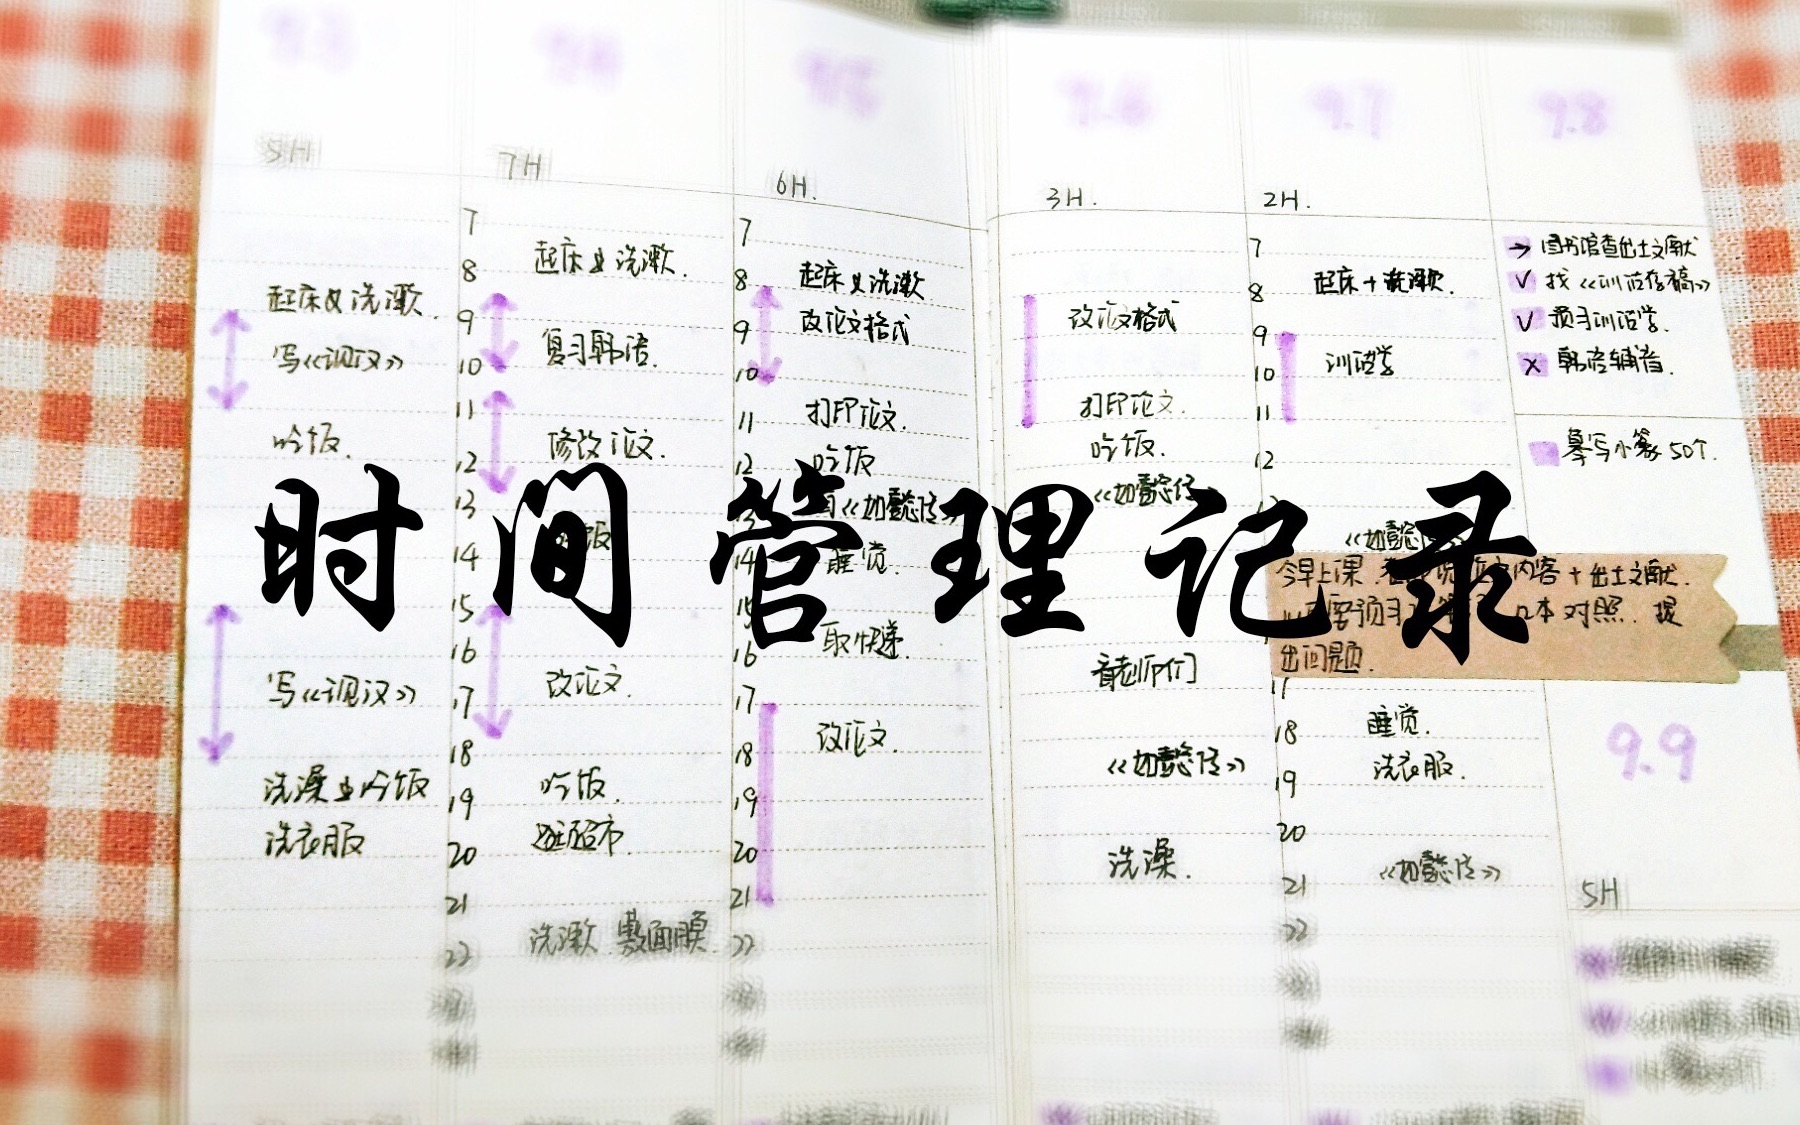 时间管理记录
9.3
5H
起床&洗漱.
写《说汉》
吃饭.
写《说汉》
洗澡&吃饭
洗衣服
9.4
7H
7
8
9
10
11
12
13
14
15
16
17
18
19
20
21
22
起床&洗漱.
复习韩语.
修改论文.
吃饭
改论文.
吃饭.
逛超市.
洗漱.敷面膜.
9.5
6H.
7
8
9
10
11
12
13
14
15
16
17
18
19
20
21
22
起床&洗漱
改论文格式
打印论文.
吃饭
《如懿传》
睡觉.
取快递.
改论文.
9.6
3H.
改论文格式
打印论文.
吃饭.
《如懿传》
看老师们
《如懿传》
洗澡.
9.7
2H.
7
8
9
10
11
12
17
18
19
20
21
22
起床+洗漱.
训诂学
《如懿传》
睡觉.
洗衣服.
《如懿传》
9.8
→ 图书馆查出土文献
√ 找《训诂存稿》
√ 预习训诂学.
x 韩语辅音.
摹写小篆50个.
今早上课.
内容+出土文献.
预习
本对照.提
出问题.
9.9
5H